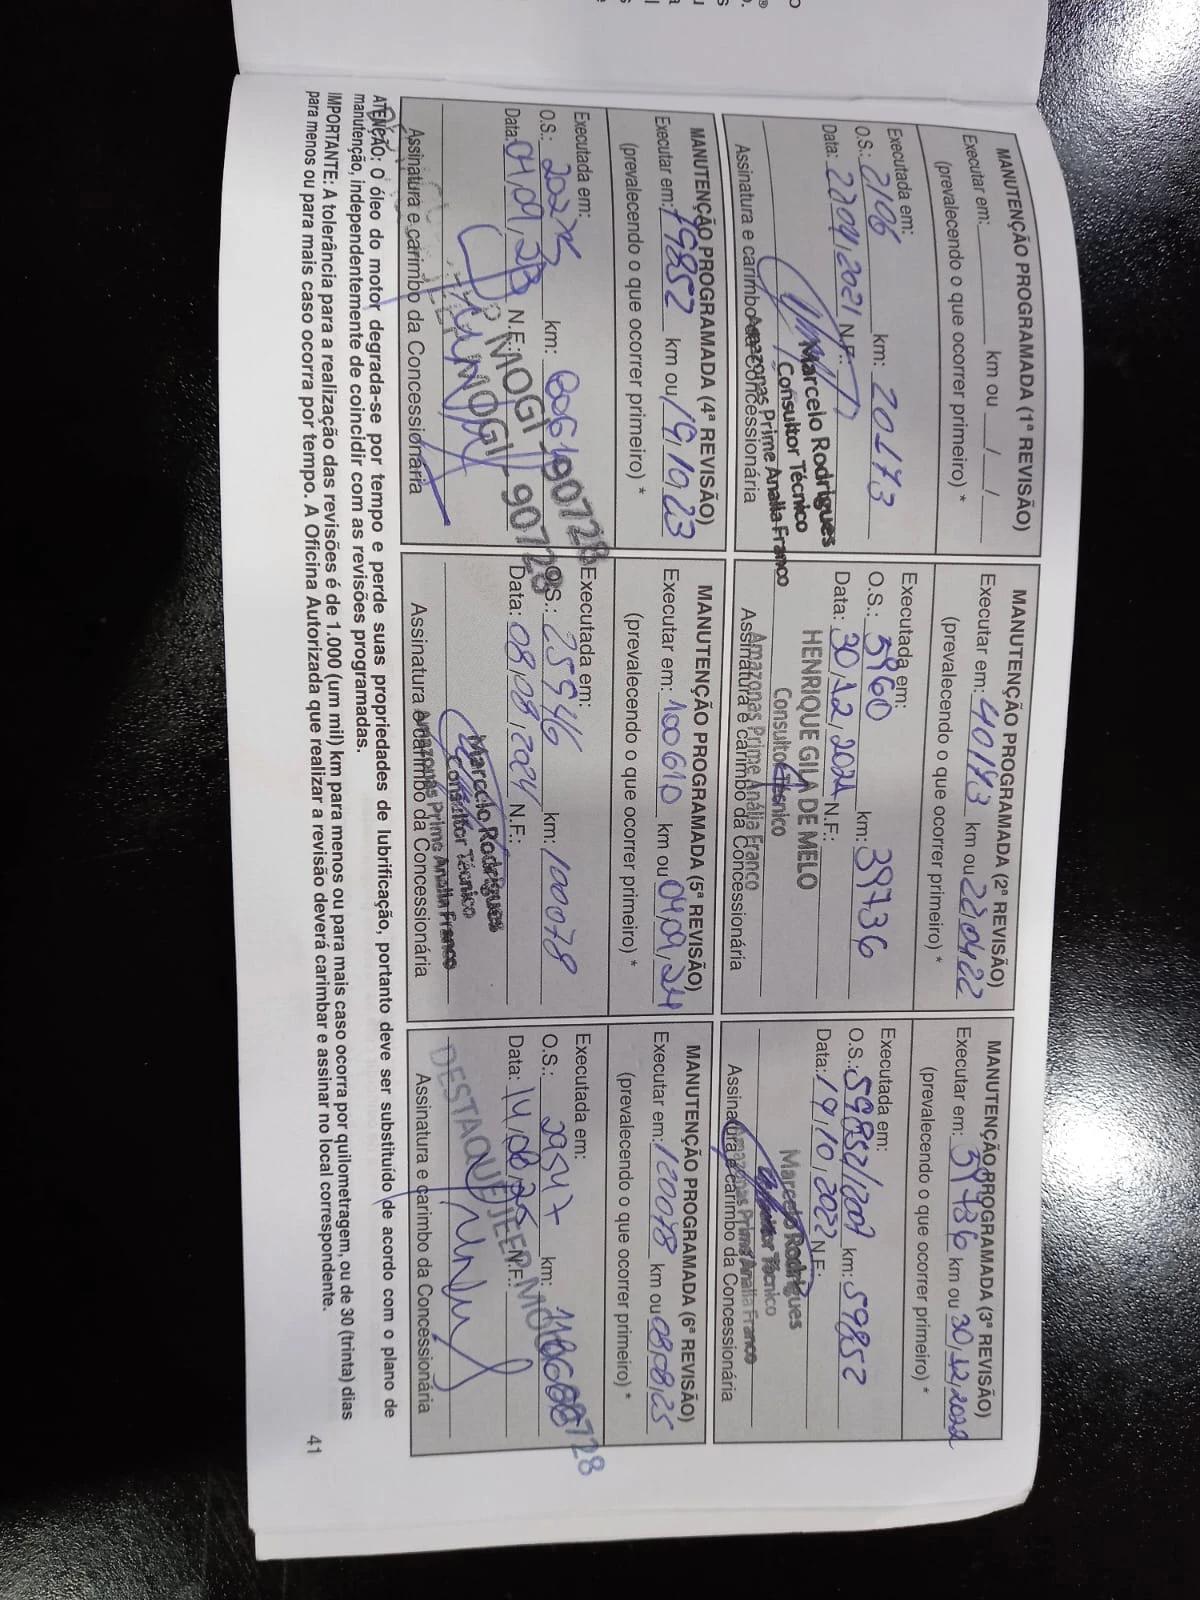 MANUTENÇÃO PROGRAMADA (1ª REVISÃO)
Executar em: km ou / /
(prevalecendo o que ocorrer primeiro) *
Executada em:
O.S.: 2106 km: 20173
Data: 22/04/2021 N.F.:
Marcelo Rodrigues
Consultor Técnico
Amazonas Prime Analia Franco
Assinatura e carimbo da Concessionária
MANUTENÇÃO PROGRAMADA (2ª REVISÃO)
Executar em: 40173 km ou 22/04/22
(prevalecendo o que ocorrer primeiro) *
Executada em:
O.S.: 5960 km: 39736
Data: 30/12/2021 N.F.:
HENRIQUE GILA DE MELO
Consultor Técnico
Amazonas Prime Anália Franco
Assinatura e carimbo da Concessionária
MANUTENÇÃO PROGRAMADA (3ª REVISÃO)
Executar em: 59736 km ou 30/12/2022
(prevalecendo o que ocorrer primeiro) *
Executada em:
O.S.: km: 59852
Data: 19/10/2022 N.F.:
Marcelo Rodrigues
Consultor Técnico
Amazonas Prime Analia Franco
Assinatura e carimbo da Concessionária
MANUTENÇÃO PROGRAMADA (4ª REVISÃO)
Executar em: 79852 km ou 19/10/23
(prevalecendo o que ocorrer primeiro) *
Executada em:
O.S.: 20275 km: 80619
Data: 04/09/23 N.F.:
MOGI 90728
MOGI - 90728
Assinatura e carimbo da Concessionária
MANUTENÇÃO PROGRAMADA (5ª REVISÃO)
Executar em: 100610 km ou 04/09/24
(prevalecendo o que ocorrer primeiro) *
Executada em:
O.S.: 25946 km: 100078
Data: 08/08/2024 N.F.:
Marcelo Rodrigues
Consultor Técnico
Amazonas Prime Analia Franco
Assinatura e carimbo da Concessionária
MANUTENÇÃO PROGRAMADA (6ª REVISÃO)
Executar em: 120078 km ou 08/08/25
(prevalecendo o que ocorrer primeiro) *
Executada em:
O.S.: 29547 km:
Data: 14/08/25 N.F.:
DESTAQUE JEEP MOGI
Assinatura e carimbo da Concessionária
ATENÇÃO: O óleo do motor degrada-se por tempo e perde suas propriedades de lubrificação, portanto deve ser substituído de acordo com o plano de
manutenção, independentemente de coincidir com as revisões programadas.
IMPORTANTE: A tolerância para a realização das revisões é de 1.000 (um mil) km para menos ou para mais caso ocorra por quilometragem, ou de 30 (trinta) dias
para menos ou para mais caso ocorra por tempo. A Oficina Autorizada que realizar a revisão deverá carimbar e assinar no local correspondente.
41